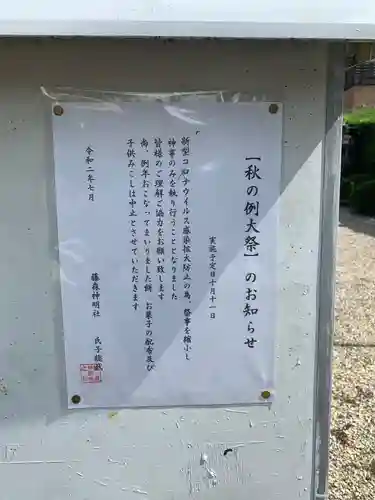 【秋の例大祭】のお知らせ
実施予定日十月十一日
新型コロナウイルス感染拡大防止の為、祭事を縮小し
神事のみを執り行うこととなりました
皆様のご理解ご協力をお願い致します
尚、例年おこなってまいりました餅、お菓子の配布及び
子供みこしは中止とさせていただきます
令和二年七月
藤森神明社
氏子総代